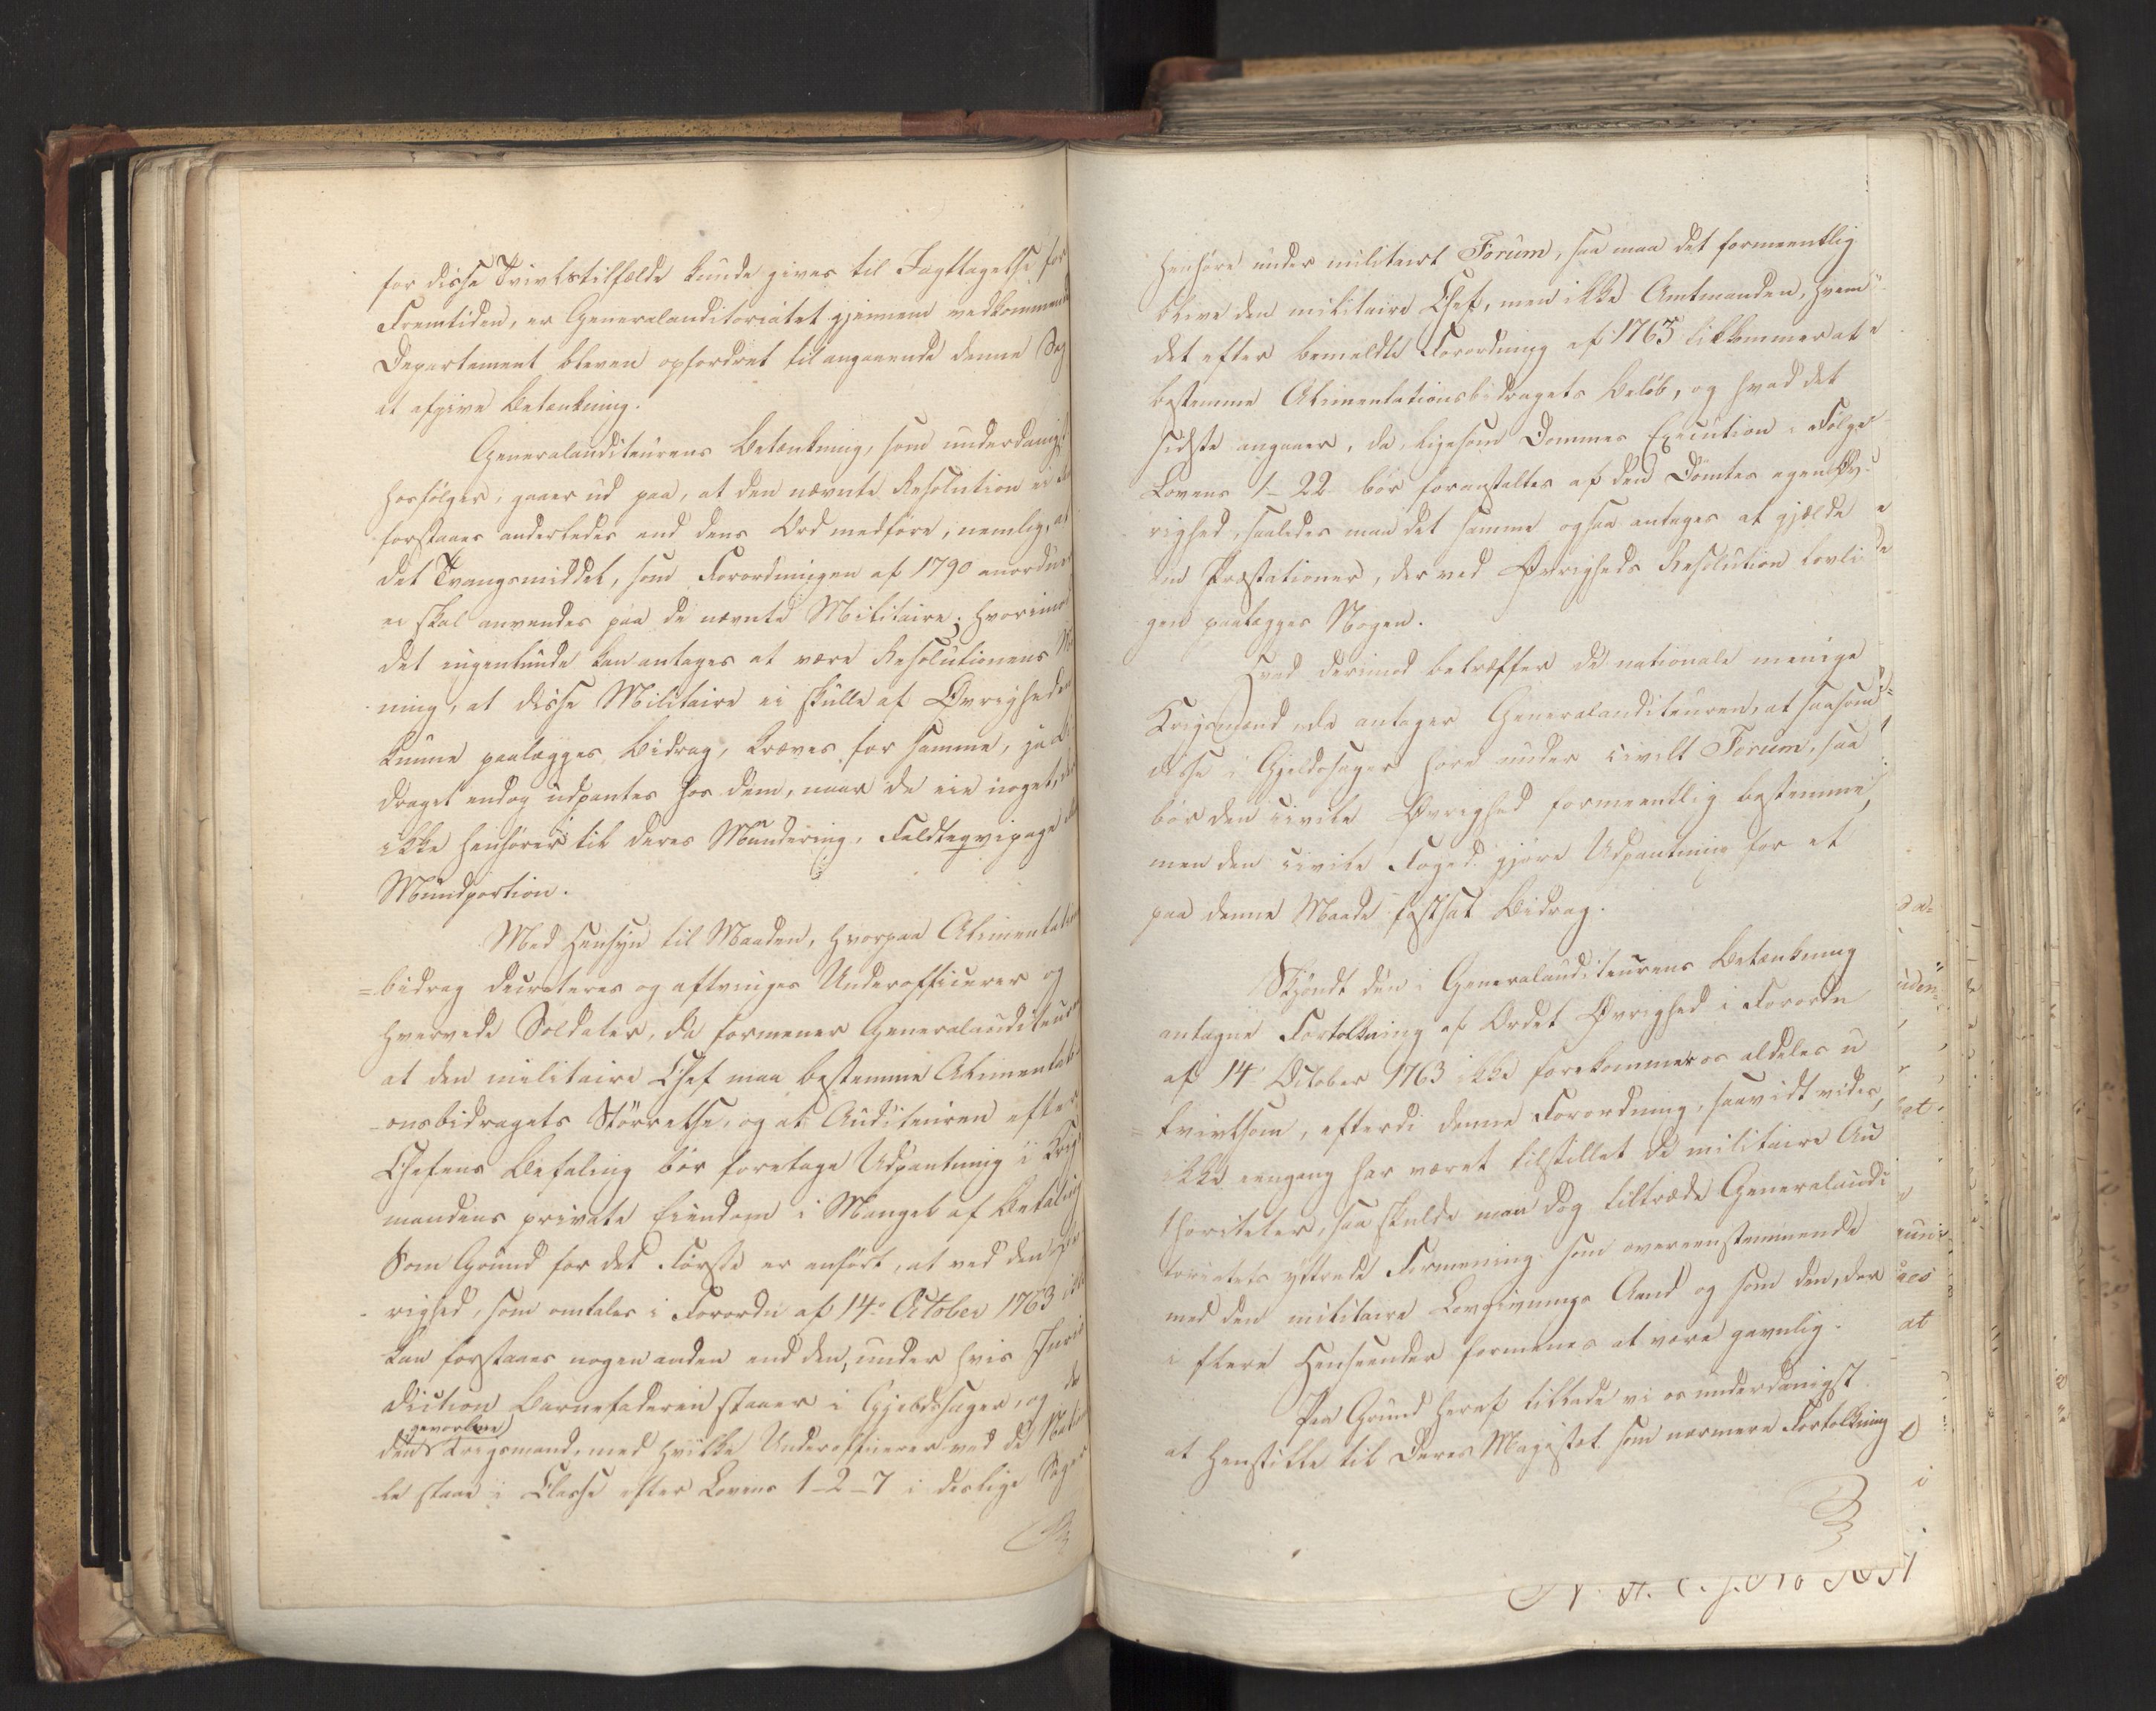 for disse Tvivlstilfælde kunde gives til Jagttagelse for
Fremtiden, er Generalauditoriatet gjennem vedkommende
Departement bleven opfordret til angaaende denne Sag
at afgive Betænkning.
Generalauditeurens Betænkning, som underdanigst
hosfølger, gaaer ud paa, at den nævnte Resolution ei
forstaaes anderledes end dens Ord medføre, nemlig, at
det Tvangsmiddel, som Forordningen af 1790 anordner
ei skal anvendes paa de nævnte Militaire; hvorimod
det ingenlunde kan antages at være Resolutionens
ning, at disse Militaire ei skulle af Øvrigheden
kunne paalægges Bidrag, kræves for samme, ja
draget endog udpantes hos dem, naar de eie noget,
ikke henhører til deres Mundering, Feldteqvipage
Mundportion.
Med Hensyn til Maaden, hvorpaa Alimentati
=bidrag decreteres og aftvinges Underofficerer og
hvervede Soldater, da formener Generalauditeur
at den militaire Chef maa bestemme Alimentati
onsbidragets Størrelse, og at Auditeuren efter
Chefens Befaling bør foretage Udpantning i Krigs
mandens private Eiendom i Mangel af Betaling
Som Grund for det Første er anført, at ved den Øv
righed, som omtales i Forordn af 14de October 1763 ikke
kan forstaaes nogen anden end den, under hvis Juris
diction Barnefaderen staaer i Gjeldssager, og da
gevorbne
den Krigsmand, med hvilke Underofficerer ved de Nation
le staae i Classe efter Lovens 1-2-7 i deslige Sager
henhøre under militairt Forum, saa maa det formeentlig
blive den militaire Chef, men ikke Amtmanden, hvem
det efter bemeldte Forordning af 1763 tilkommer at
bestemme Alimentationsbidragets Beløb, og hvad det
sidste angaaer, da, ligesom Dommes Execution i Følge
Lovens 1-22 bør foranstaltes af den Dömtes egen Øv-
righed, saaledes maa det samme ogsaa antages at gjælde
om Præstationer, der ved Øvrigheds Resolution lovli
gen paalægges Nogen.
Hvad derimod betræffer de nationale menige
Krigsmænd da antager Generalauditeuren, at saasom
disse i Gjeldssager høre under civilt Forum, saa
bør den civile Øvrighed formeentlig bestemme,
men den civile Foged gjøre Udpantning for et
paa denne Maade fastsat Bidrag.
Skjøndt den i Generalauditeurens Betænkning
antagne Fortolkning af Ordet Øvrighed i Forordn
af 14 October 1763 ikke forekommer os aldeles u
=tvivlsom, efterdi denne Forordning, saavidt vides,
ikke eengang har været tilstillet de militaire Au
thoriteter, saa skulde man dog tiltræde Generalaudi
toriatets yttrede Formening som overeensstemmende
med den militaire Lovgivnings Aand og som den, der
i flere Henseender formenes at være gavnlig.
Paa Grund heraf tillade vi os underdanigst
at henstille til Deres Majestæt som nærmere Fortolkning